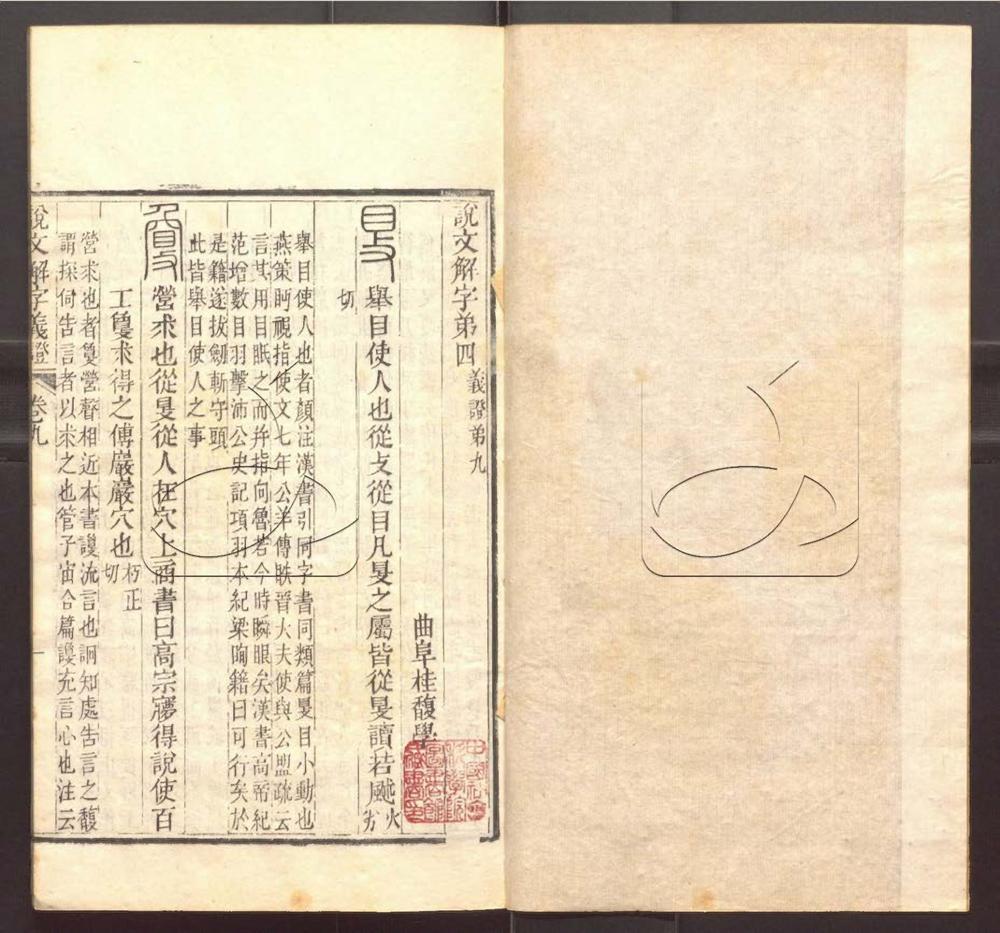 說文解字弟四 義證弟九
曲阜桂馥學
𥄎 舉目使人也從攴從目凡𥄎之屬皆從𥄎讀若䬍火劣
切
舉目使人也者顏注漢書引同字書同類篇𥄎目小動也
燕策眄視指使文七年公羊傳眣晉大夫使與公盟疏云
言其用目眂之而幷指向魯若今時瞬眼矣漢書高帝紀
范增數目羽擊沛公史記項羽本紀梁眴籍曰可行矣於
是籍遂拔劒斬守頭
此皆舉目使人之事
敻 營求也從𥄎從人在穴上商書曰高宗㝱得說使百
工敻求得之傅巖巖穴也朽正切
營求也者敻營聲相近本書䜓流言也詗知處告言之馥
謂探伺告言者以求之也管子宙合篇䜓充言心也注云
說文解字義證 卷九 一